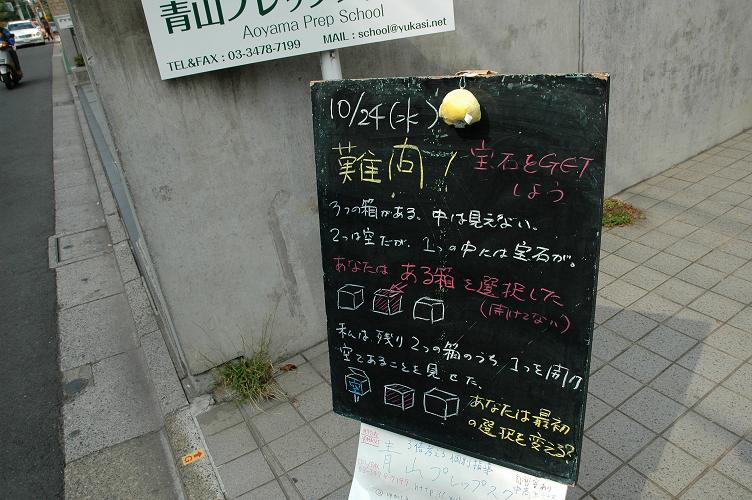 青山プレップス
Aoyama Prep School
TEL&FAX : 03-3478-7199 MAIL : school@yukasi.net
10/24(水)
難問!
宝石をGET
しよう
3つの箱がある、中は見えない。
2つは空だが、1つの中には宝石が。
あなたは ある箱 を選択した
(開けてない)
私は残り2つの箱のうち1つを開け
空であることを見せた、
空
あなたは最初
の選択を変える?
青山プレップス